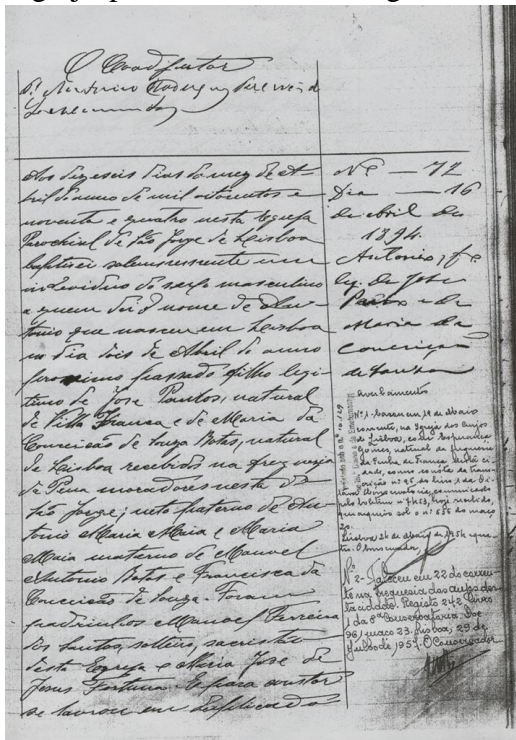 O Coadjutor
P.e Antonino Rodrigues Pereira de
Aos dezeseis dias do mez de A-
bril do anno de mil oitocentos e
noventa e quatro nesta Egreja
Parochial de São Jorge de Lisboa
baptisei solemnemente um
individuo do sexo masculino
a quem dei o nome de An-
tonio que nasceu em Lisboa
no dia dois de Abril do anno
passado filho legi-
timo de Jose Pantos, natural
de Villa Franca e de Maria da
Conceição de Souza Botas, natural
de Lisboa recebidos na freguezia
da Pena moradores nesta de
São Jorge; neto paterno de An-
tonio Maria Maia e Maria
Maia materno de Manoel
Antonio Botas e Francisca da
Conceição de Souza. Foram
padrinhos Manoel Ferreira
dos Santos, solteiro, sacristão
desta Egreja e Maria Jose de
Jesus Fortuna. E para constar
se lavrou em duplicado
Nº — 72
Dia — 16
de Abril de
1894.
Antonio, f.º
leg. de Jose
Pantos e de
Maria da
Conceição
de Souza
Averbamentos
Nº 1 - Casou em 14 de Maio
corrente, na Igreja dos Anjos
de Lisboa, com Esperança
Gomes, natural da freguesia
da Penha de França desta ci-
dade, como consta da trans-
crição nº 95 do livro 1 da
Lisboa 26 de Maio de 1954
Nº 2 - Faleceu em 22 do corren-
te na freguesia dos Anjos des-
ta cidade. Registo 242 Livro
1 da 8ª Conservatoria. Doc
96, maço 23. Lisboa, 29 de
Julho de 1957. O Conservador